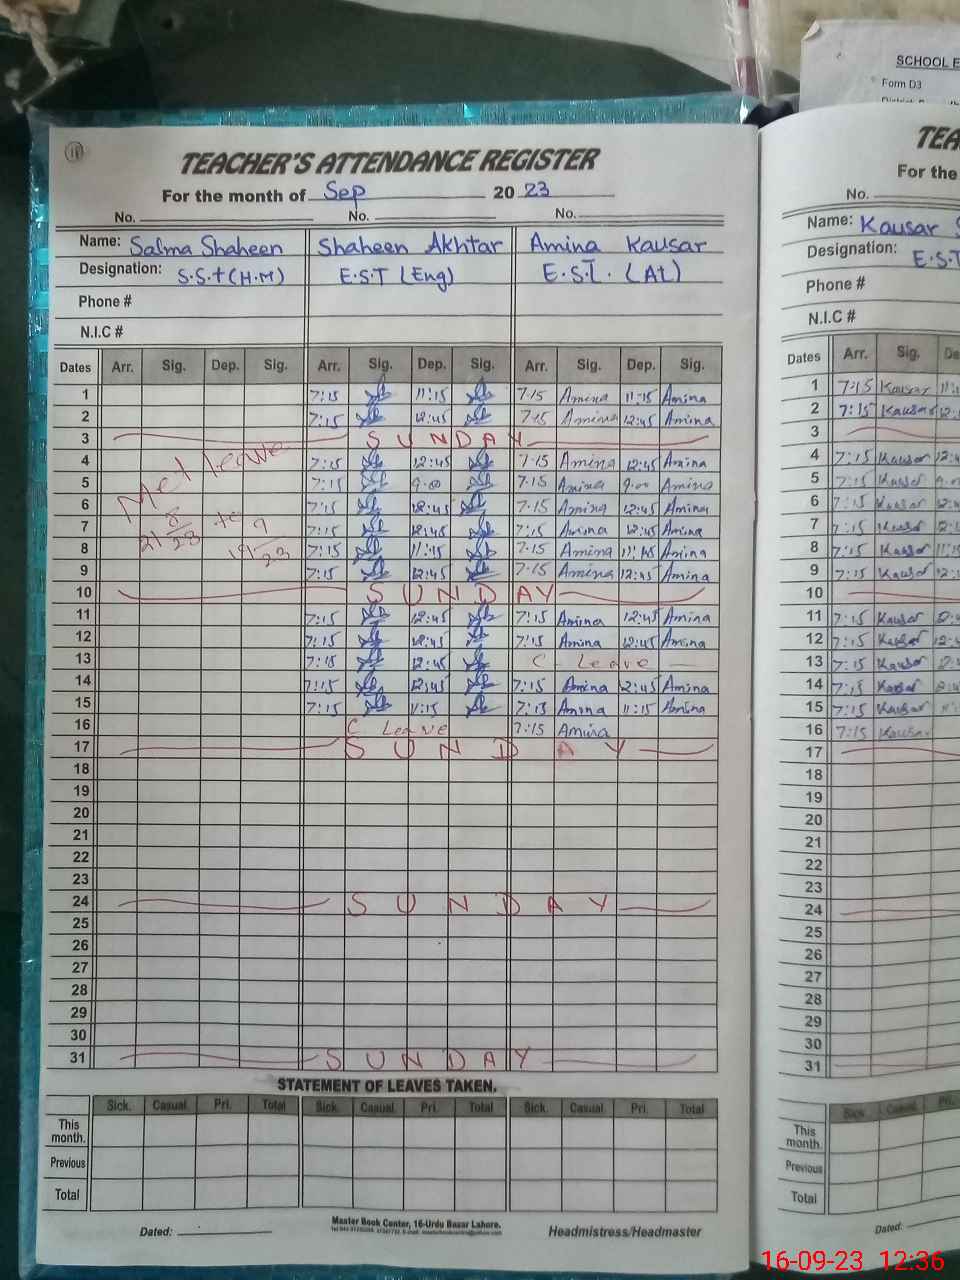 SCHOOL E
Form D3
11
TEACHER'S ATTENDANCE REGISTER
For the month of Sep 2023
No. No. No.
Name: Salma Shaheen Shaheen Akhtar Amina Kausar
Designation: S.S.t (H.M) E.S.T (Eng) E.S.T. (At)
Phone #
N.I.C #
Dates Arr. Sig. Dep. Sig. Arr. Sig. Dep. Sig. Arr. Sig. Dep. Sig.
1 7:15 11:15 7.15 Amina 11:15 Amina
2 7:15 12:45 7.15 Amina 12:45 Amina
3 SUNDAY
4 7:15 12:45 7.15 Amina 12:45 Amina
5 7:15 9.00 7.15 Amina 9.00 Amina
6 7:15 12:45 7.15 Amina 12:45 Amina
7 7:15 12:45 7:15 Amina 12:45 Amina
8 7:15 11:15 7.15 Amina 11:15 Amina
9 7:15 12:45 7.15 Amina 12:45 Amina
Leave
to
10 SUNDAY
11 7:15 12:45 7:15 Amina 12:45 Amina
12 7:15 12:45 7:15 Amina 12:45 Amina
13 7:15 12:45 C - Leave
14 7:15 12:45 7:15 Amina 2:45 Amina
15 7:15 11:15 7:15 Amina 11:15 Amina
16 C Leave 7:15 Amina
17 SUNDAY
18
19
20
21
22
23
24 SUNDAY
25
26
27
28
29
30
31 SUNDAY
STATEMENT OF LEAVES TAKEN.
Sick. Casual. Pri. Total Sick. Casual. Pri. Total Sick. Casual. Pri. Total
This month.
Previous
Total
Master Book Center, 16-Urdu Bazar Lahore.
Dated: Headmistress/Headmaster
TEA
For the
No.
Name: Kausar S
Designation: E.S.T
Phone #
N.I.C #
Dates Arr. Sig. De
1 7:15 Kausar 11:1
2 7:15 Kausar 12:
3
4 7:15 Kausar 12:4
5 7:15 Kausar 9.0
6 7:15 Kausar 12:4
7 7:15 Kausar
8 7:15 Kausar 11:15
9 7:15 Kausar 12:4
10
11 7:15 Kausar
12 7:15 Kausar
13 7:15 Kausar
14 7:15 Kausar
15 7:15 Kausar
16 7:15 Kausar
17
18
19
20
21
22
23
24
25
26
27
28
29
30
31
Sick. Casual. Pri.
This month.
Previous
Total
Dated:
16-09-23 12:36